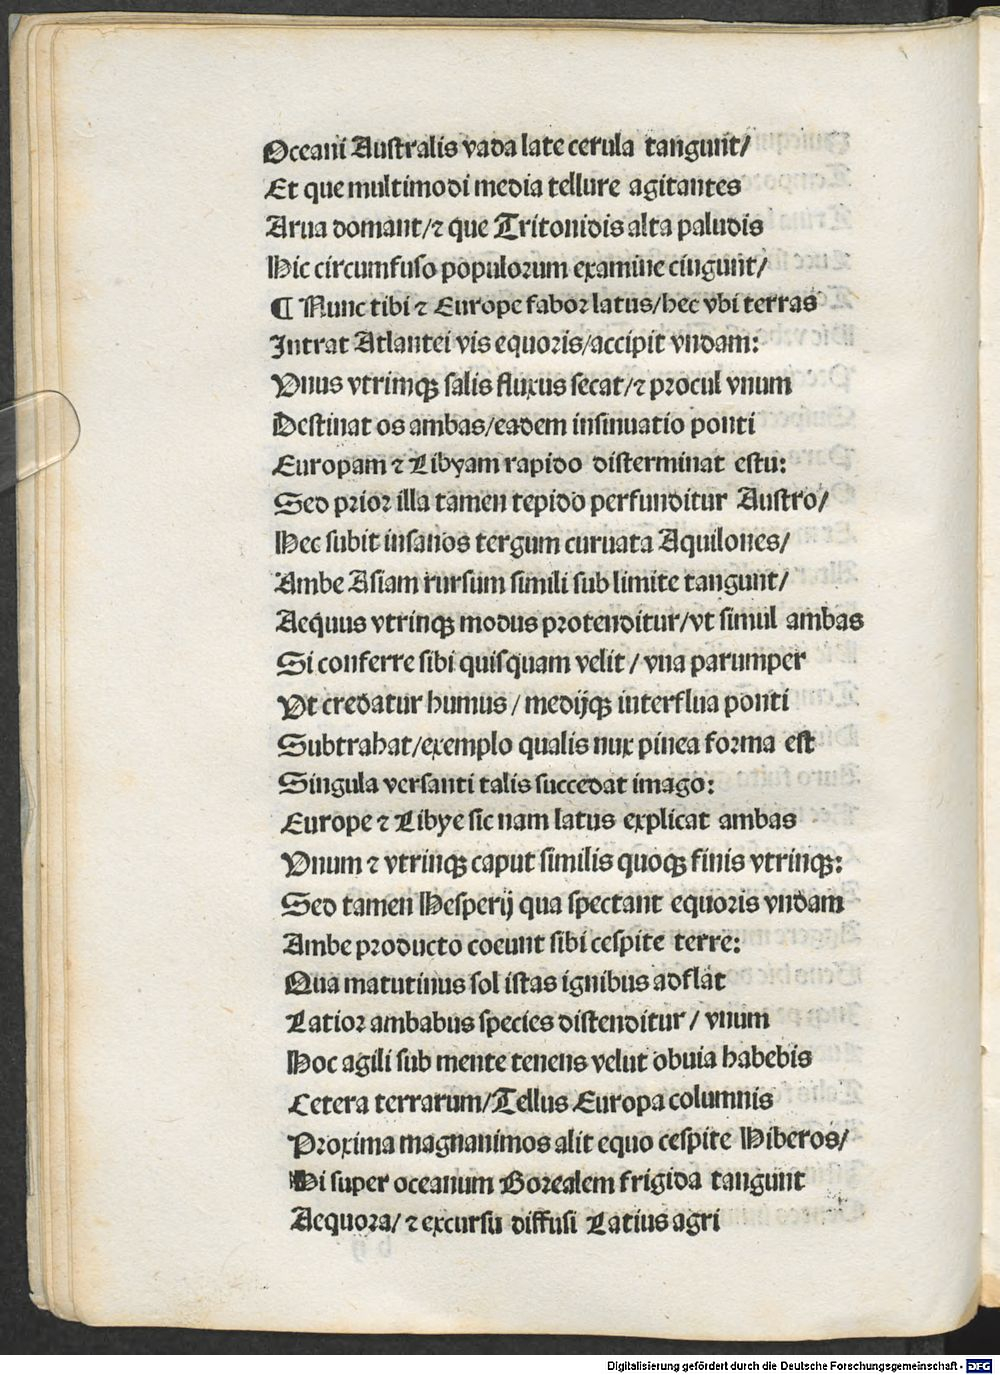 Oceani Australis vada late cerula tangunt/
Et que multimodi media tellure agitantes
Arua domant/⁊ que Tritonidis alta paludis
Hic circumfuso populoꝛum examine cingunt/
¶ Nunc tibi ⁊ Europe faboꝛ latus/hec vbi terras
Intrat Atlantei vis equoris/accipit vndam:
Vnus vtrimqꝫ salis fluxus secat/⁊ procul vnum
Destinat os ambas/eadem insinuatio ponti
Europam ⁊ Libyam rapido disterminat estu:
Sed pꝛioꝛ illa tamen tepido perfunditur Austro/
Hec subit insanos tergum curuata Aquilones/
Ambe Asiam rursum simili sub limite tangunt/
Aequus vtrinqꝫ modus pꝛotenditur/vt simul ambas
Si conferre sibi quisquam velit / vna parumper
Vt credatur humus / medijqꝫ interflua ponti
Subtrahat/exemplo qualis nux pinea foꝛma est
Singula versanti talis succedat imago:
Europe ⁊ Libye sic nam latus explicat ambas
Vnum ⁊ vtrinqꝫ caput similis quoqꝫ finis vtrinqꝫ:
Sed tamen Hesperij qua spectant equoris vndam
Ambe pꝛoducto coeunt sibi cespite terre:
Qua matutinus sol istas ignibus adflat
Latioꝛ ambabus species distenditur / vnum
Hoc agili sub mente tenens velut obuia habebis
Cetera terrarum/Tellus Europa columnis
Pꝛoxima magnanimos alit equo cespite Hiberos/
Hi super oceanum Boꝛealem frigida tangunt
Aequoꝛa/ ⁊ excursu diffusi Latius agri
Digitalisierung gefördert durch die Deutsche Forschungsgemeinschaft - DFG